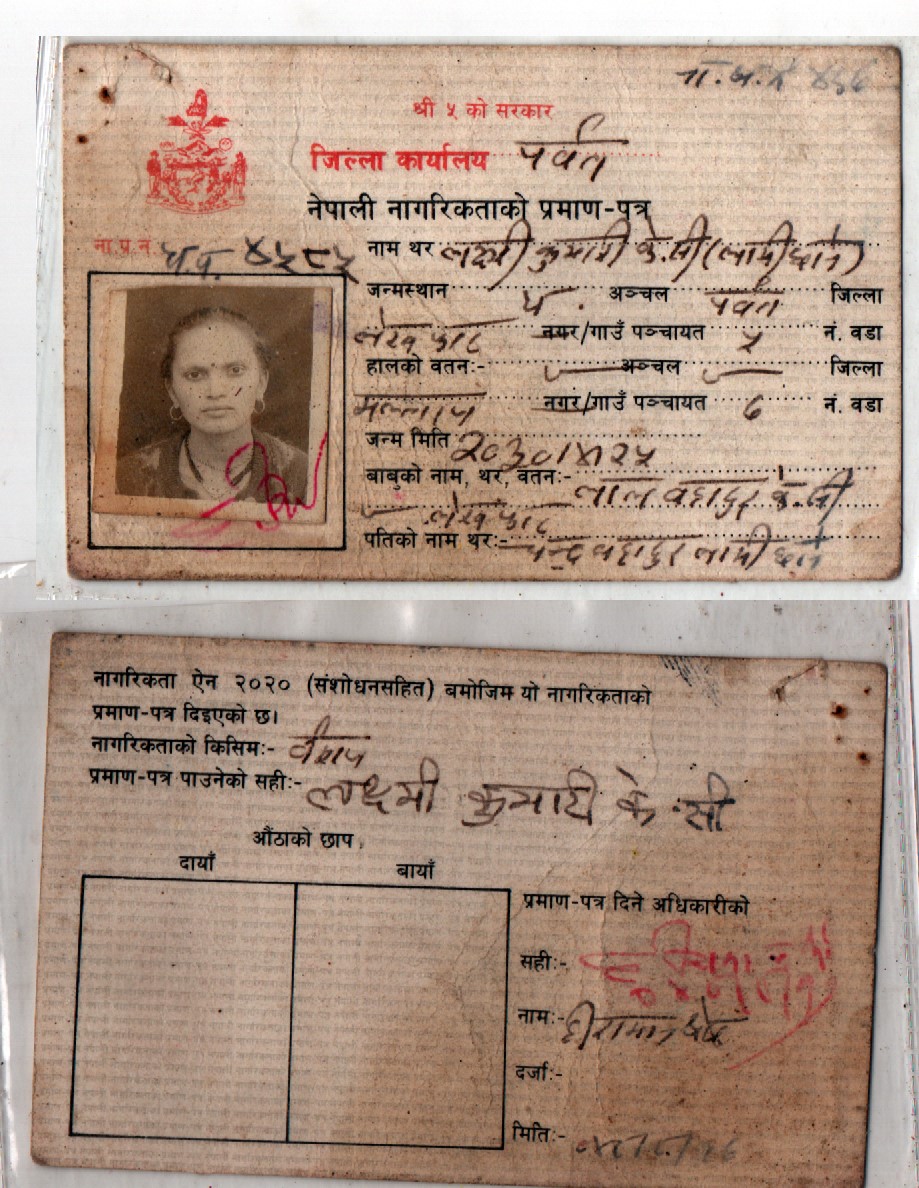 श्री ५ को सरकार
जिल्ला कार्यालय पर्वत
नेपाली नागरिकताको प्रमाण-पत्र
ना.प्र.नं. प.प. ४५८५
नाम थर लक्ष्मी कुमारी के.सी (लामीछाने)
जन्मस्थान ध. अञ्चल पर्वत जिल्ला
लेखफाट नगर/गाउँ पञ्चायत ५ नं. वडा
हालको वतनः- अञ्चल जिल्ला
मल्लाज नगर/गाउँ पञ्चायत ६ नं. वडा
जन्म मिति २०३०।४।२५
बाबुको नाम, थर, वतनः- लाल बहादुर के.सी
लेखफाट
पतिको नाम थरः- चन्द्र बहादुर लामीछाने
नागरिकता ऐन २०२० (संशोधनसहित) बमोजिम यो नागरिकताको
प्रमाण-पत्र दिइएको छ।
नागरिकताको किसिमः- वंशज
प्रमाण-पत्र पाउनेको सहीः- लक्ष्मी कुमारी के सी
औंठाको छाप
दायाँ बायाँ
प्रमाण-पत्र दिने अधिकारीको
सहीः-
नामः-
दर्जाः-
मितिः-